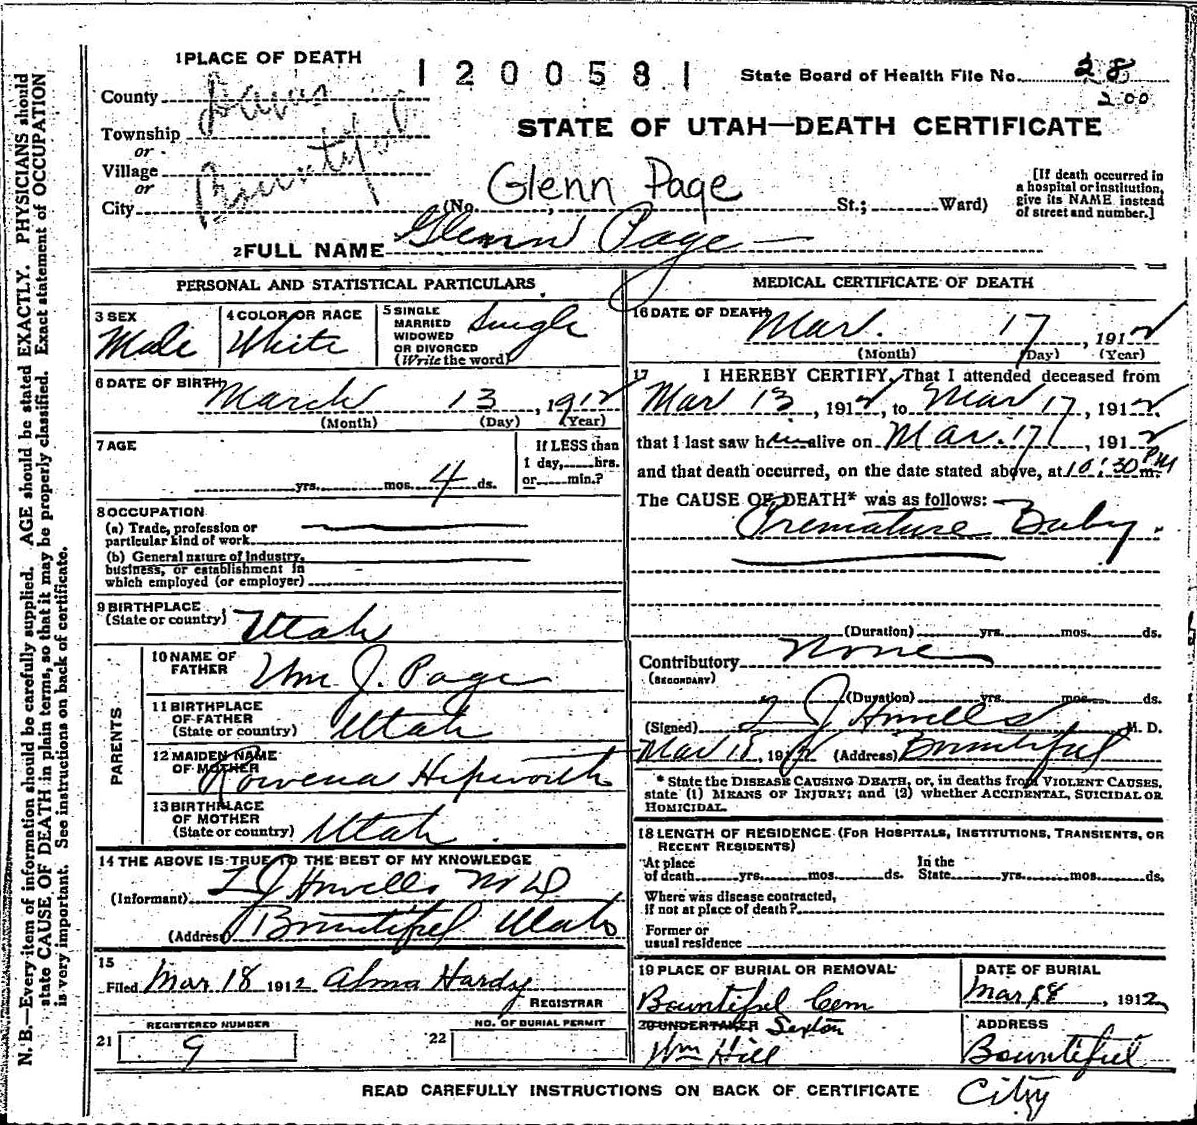 1 PLACE OF DEATH
1200581
State Board of Health File No. 28
200
County Davis
Township
or
Village Bountiful
or
City
STATE OF UTAH—DEATH CERTIFICATE
Glenn Page
(No. St.; Ward)
[If death occurred in
a hospital or institution,
give its NAME instead
of street and number.]
2 FULL NAME Glenn Page
PERSONAL AND STATISTICAL PARTICULARS
3 SEX
Male
4 COLOR OR RACE
White
5 SINGLE
MARRIED
WIDOWED
OR DIVORCED
(Write the word)
Single
6 DATE OF BIRTH
March 13, 1912
(Month) (Day) (Year)
7 AGE
yrs. mos. 4 ds.
If LESS than
1 day, hrs.
or min.?
8 OCCUPATION
(a) Trade, profession or
particular kind of work
(b) General nature of industry,
business, or establishment in
which employed (or employer)
9 BIRTHPLACE
(State or country) Utah
PARENTS
10 NAME OF
FATHER Wm J. Page
11 BIRTHPLACE
OF FATHER
(State or country) Utah
12 MAIDEN NAME
OF MOTHER Rowena Hepworth
13 BIRTHPLACE
OF MOTHER
(State or country) Utah.
14 THE ABOVE IS TRUE TO THE BEST OF MY KNOWLEDGE
(Informant) J Howells M D
(Address) Bountiful Utah
15
Filed Mar 18 1912 Alma Hardy
REGISTRAR
REGISTERED NUMBER
21 9
NO. OF BURIAL PERMIT
22
MEDICAL CERTIFICATE OF DEATH
16 DATE OF DEATH
Mar. 17, 1912
(Month) (Day) (Year)
17 I HEREBY CERTIFY, That I attended deceased from
Mar 13, 1912, to Mar 17, 1912,
that I last saw him alive on Mar. 17, 1912
and that death occurred, on the date stated above, at 10:30 PM m.
The CAUSE OF DEATH* was as follows:
Premature Baby.
(Duration) yrs. mos. ds.
Contributory None
(SECONDARY)
(Duration) yrs. mos. ds.
(Signed) J Howells M. D.
Mar 18, 1912 (Address) Bountiful
* State the DISEASE CAUSING DEATH, or, in deaths from VIOLENT CAUSES,
state (1) MEANS OF INJURY; and (2) whether ACCIDENTAL, SUICIDAL OR
HOMICIDAL.
18 LENGTH OF RESIDENCE (FOR HOSPITALS, INSTITUTIONS, TRANSIENTS, OR
RECENT RESIDENTS)
At place
of death yrs. mos. ds.
In the
State yrs. mos. ds.
Where was disease contracted,
if not at place of death?
Former or
usual residence
19 PLACE OF BURIAL OR REMOVAL
Bountiful Cem
DATE OF BURIAL
Mar 18, 1912
20 UNDERTAKER Sexton
Wm Hill
ADDRESS
Bountiful
City
READ CAREFULLY INSTRUCTIONS ON BACK OF CERTIFICATE
N. B.—Every item of information should be carefully supplied. AGE should be stated EXACTLY. PHYSICIANS should
state CAUSE OF DEATH in plain terms, so that it may be properly classified. Exact statement of OCCUPATION
is very important. See instructions on back of certificate.